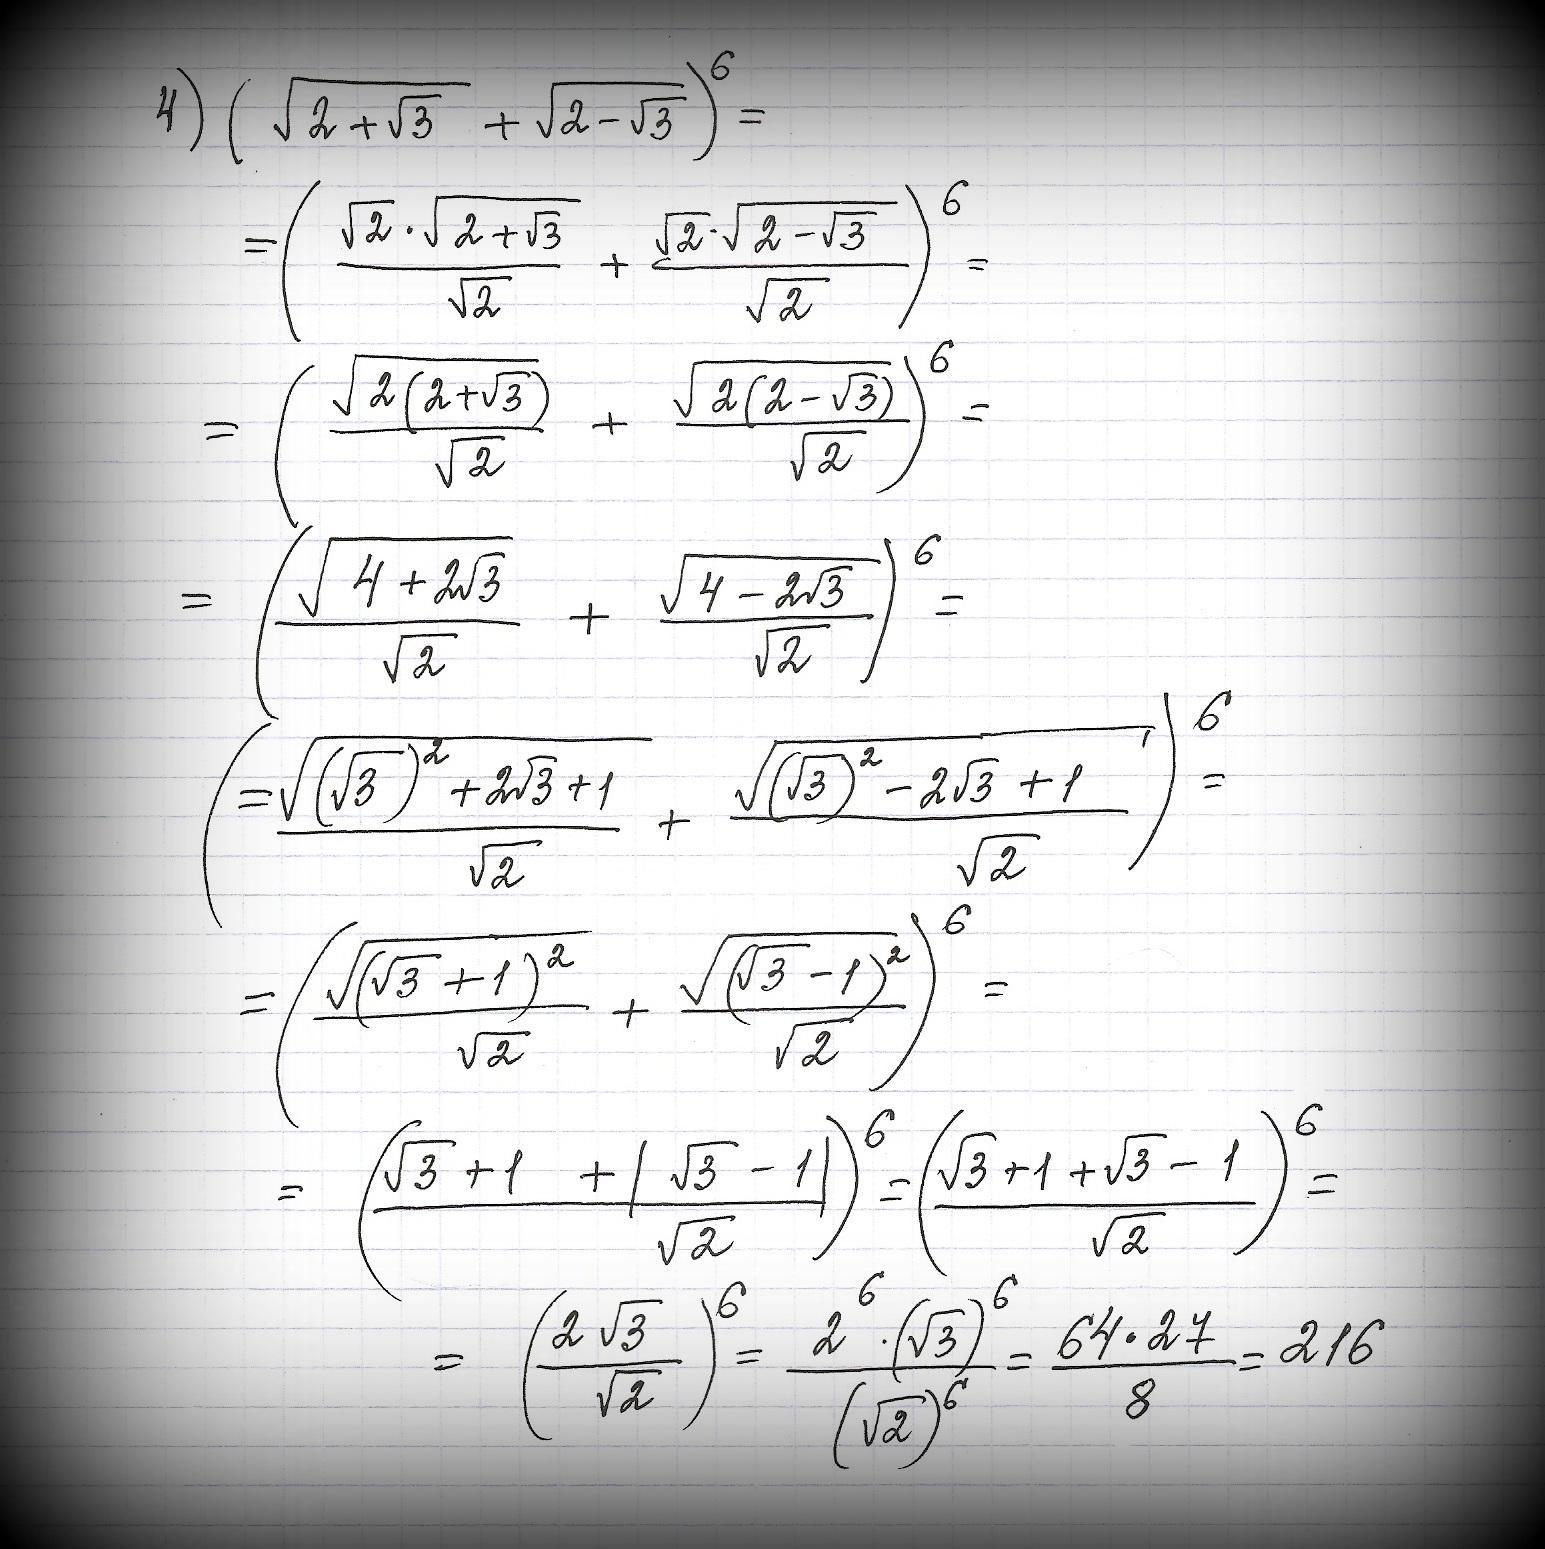 4) (√(2+√3) + √(2-√3))^6 =
= ((√2·√(2+√3))/√2 + (√2·√(2-√3))/√2)^6 =
= (√(2(2+√3))/√2 + √(2(2-√3))/√2)^6 =
= (√(4+2√3)/√2 + √(4-2√3)/√2)^6 =
(= √((√3)^2+2√3+1)/√2 + √((√3)^2-2√3+1)/√2)^6 =
= (√((√3+1)^2)/√2 + √((√3-1)^2)/√2)^6 =
= ((√3+1 + |√3-1|)/√2)^6 = ((√3+1+√3-1)/√2)^6 =
= (2√3/√2)^6 = (2^6·(√3)^6)/(√2)^6 = (64·27)/8 = 216